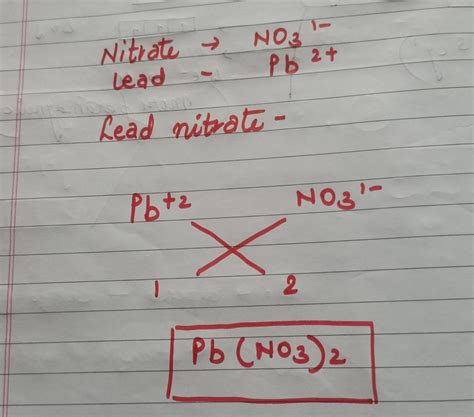 Nitrate → NO3 1-
Lead - Pb 2+
Lead nitrate -
Pb+2 NO3 1-
1 2
Pb (NO3)2